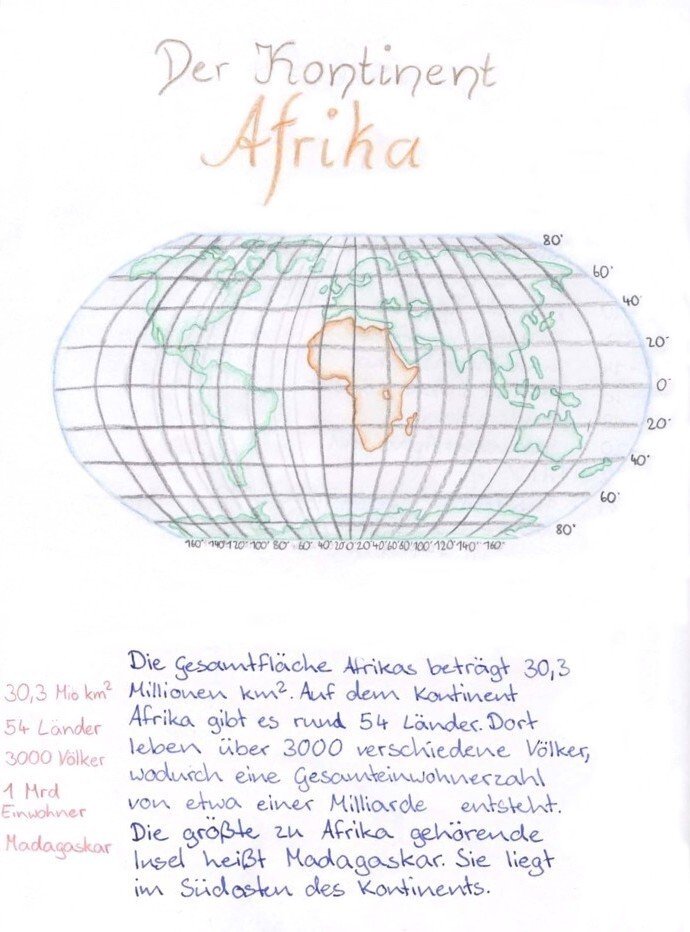 Der Kontinent
Afrika
80°
60°
40°
20°
0°
20°
40°
60°
80°
160° 140° 120° 100° 80° 60° 40° 20° 0° 20° 40° 60° 80° 100° 120° 140° 160°
30,3 Mio km²
54 Länder
3000 Völker
1 Mrd
Einwohner
Madagaskar
Die Gesamtfläche Afrikas beträgt 30,3
Millionen km². Auf dem Kontinent
Afrika gibt es rund 54 Länder. Dort
leben über 3000 verschiedene Völker,
wodurch eine Gesamteinwohnerzahl
von etwa einer Milliarde entsteht.
Die größte zu Afrika gehörende
Insel heißt Madagaskar. Sie liegt
im Südosten des Kontinents.